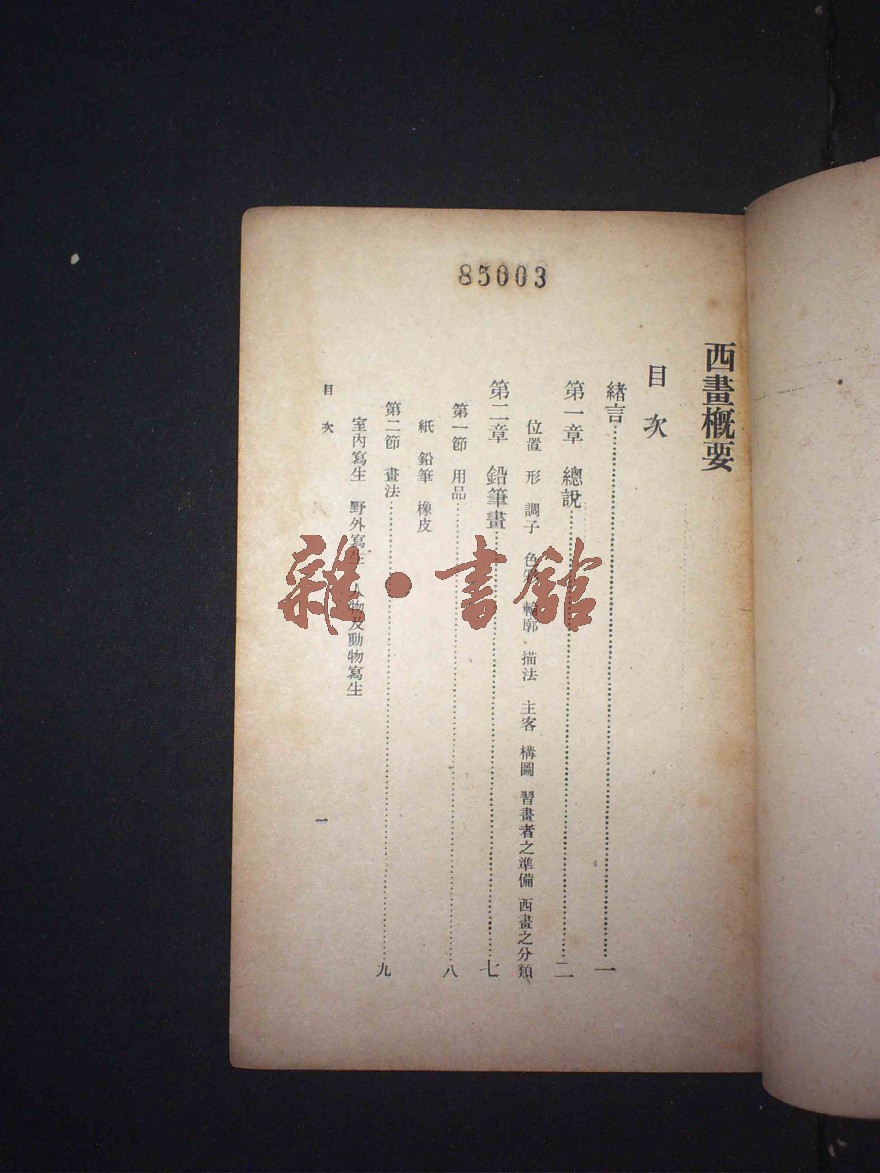 85003
西畫概要
目次
緒言……一
第一章 總說……二
位置 形 調子 色彩 輪廓 描法 主客 構圖 習畫者之準備 西畫之分類
第二章 鉛筆畫……七
第一節 用品……八
紙 鉛筆 橡皮
第二節 畫法……九
室內寫生 野外寫生 人物及動物寫生
目次 一
雜·書館